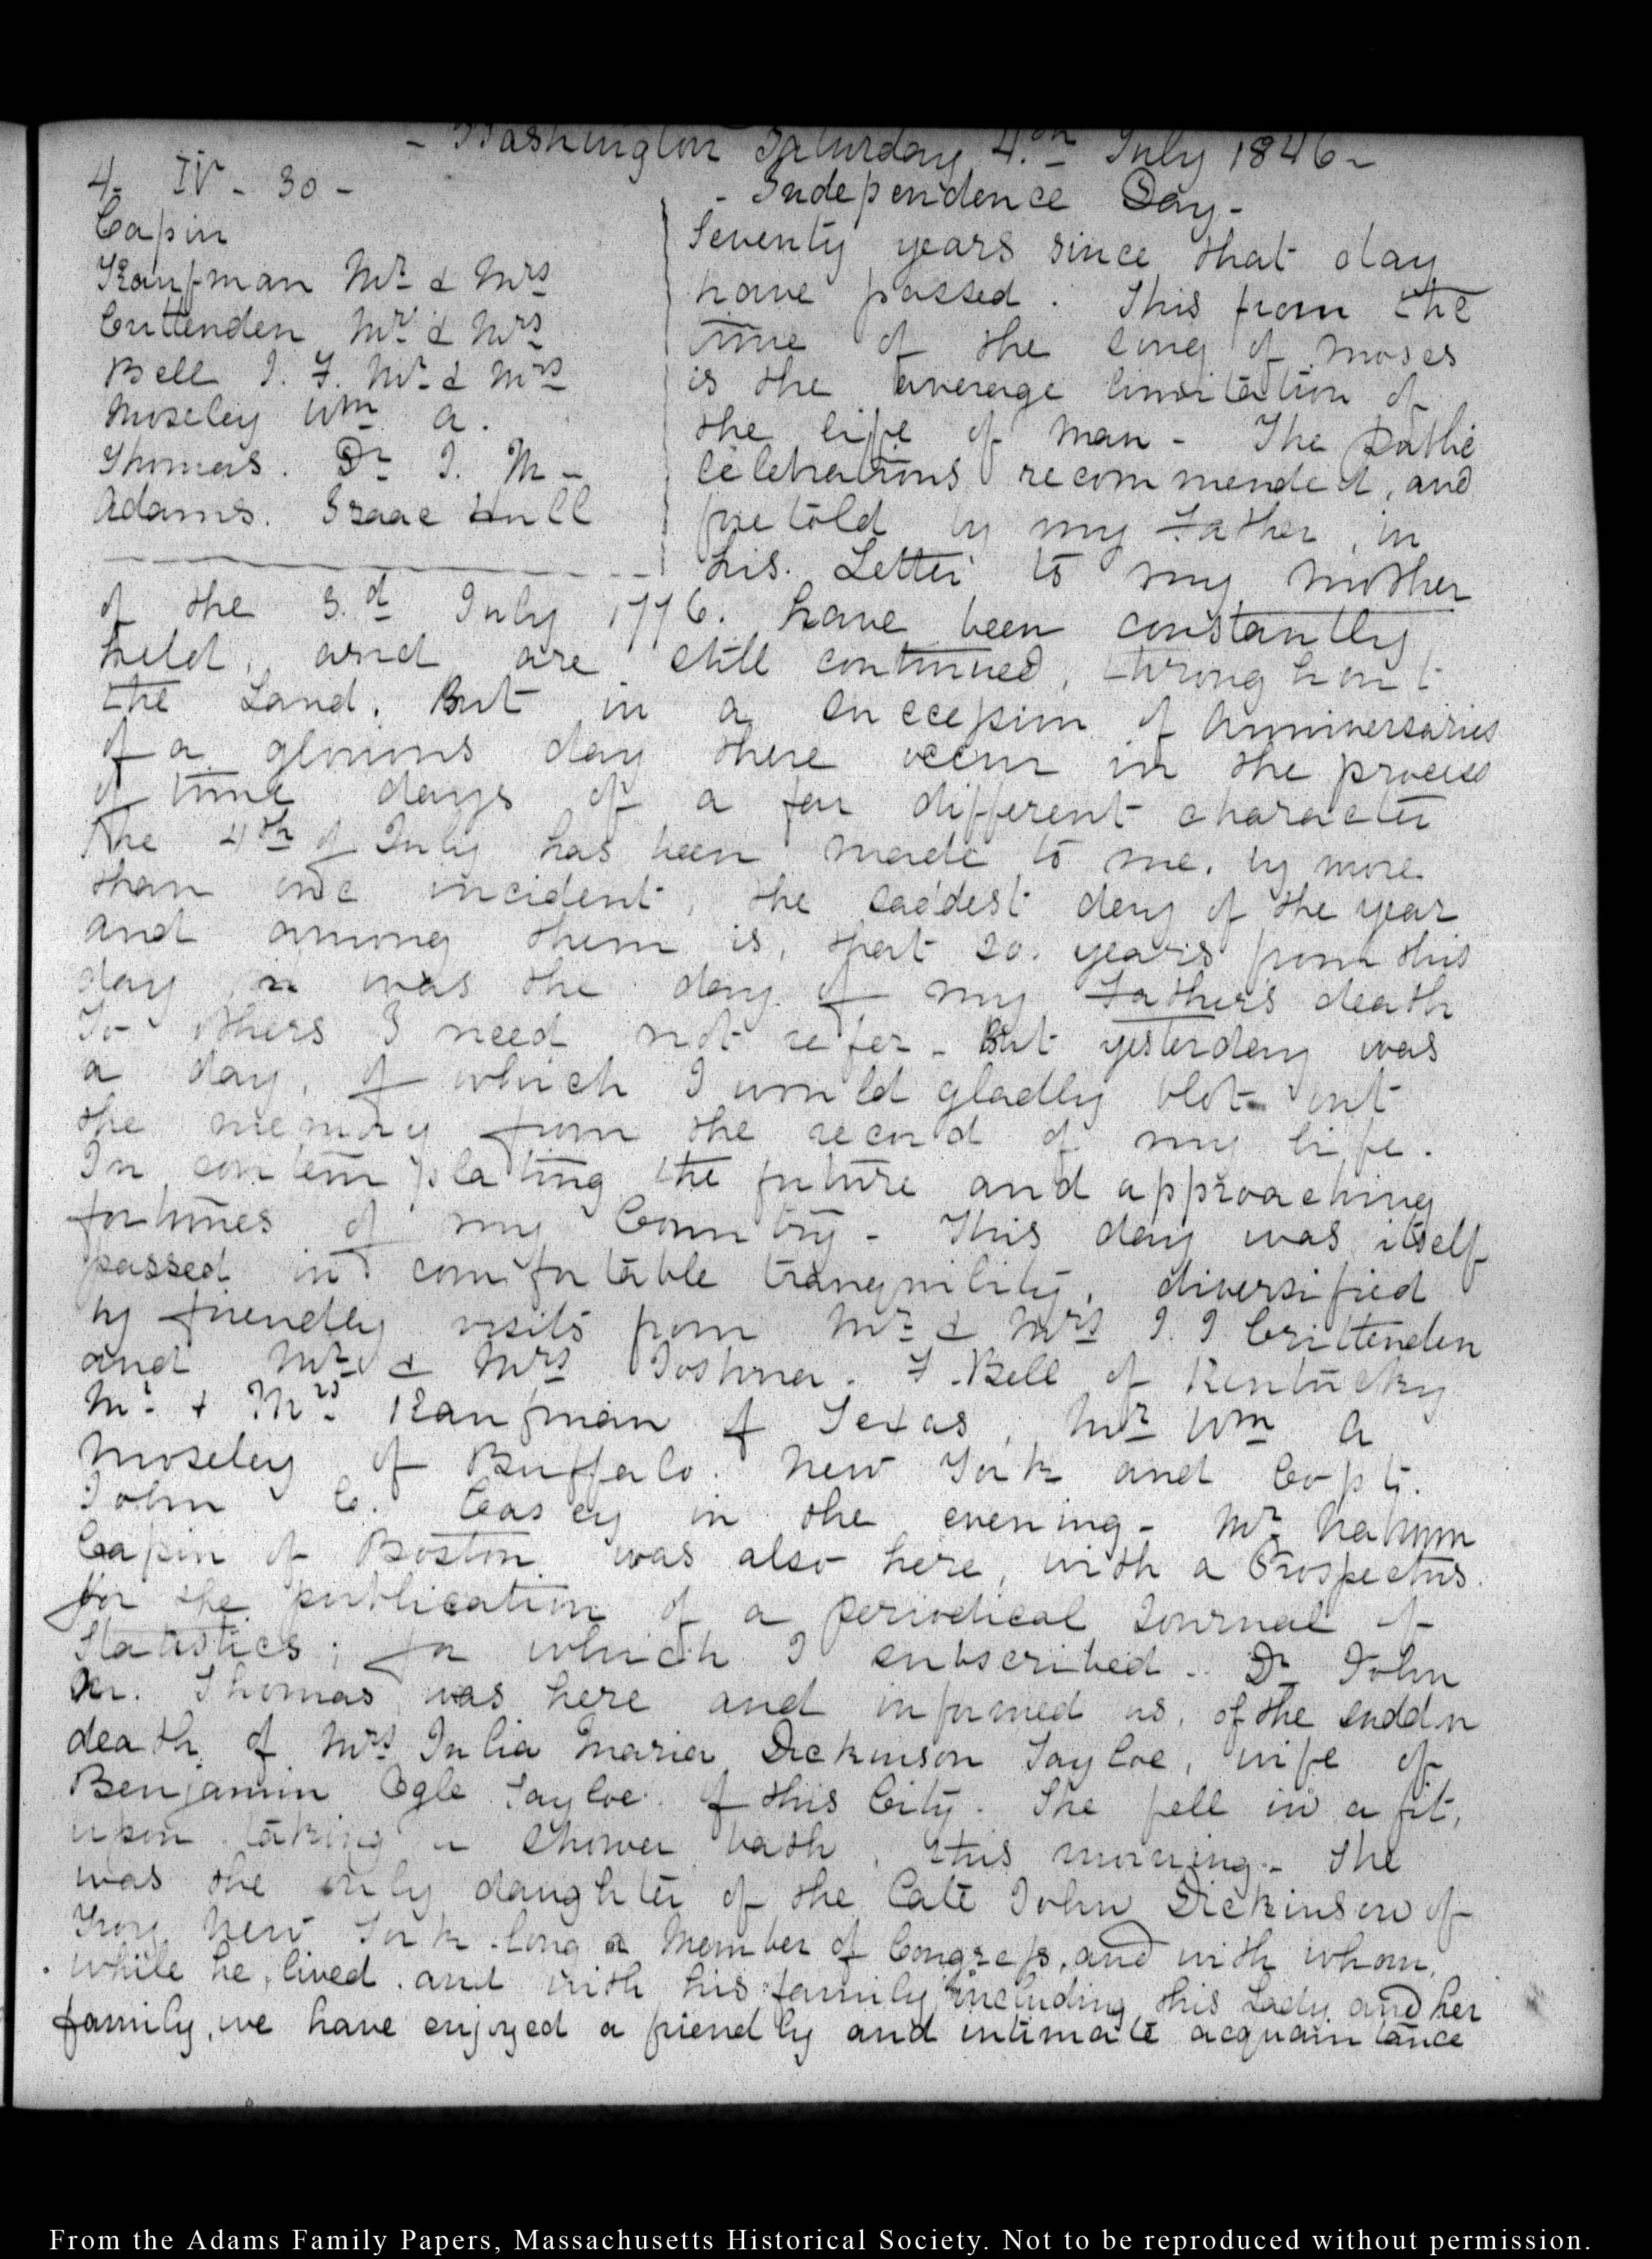 - Washington Saturday 4.th July 1846 -
4. IV. 30 -
Capin
Kaufman Mr. & Mrs
Crittenden Mr. & Mrs
Bell J. F. Mr. & Mrs
Moseley Wm. A.
Thomas. Dr. J. M -
Adams. Isaac Hull
- Independence Day -
Seventy years since that day
have passed. This from the
time of the song of Moses
is the average limitation of
the life of man - The public
celebrations recommended, and
foretold by my Father, in
his Letter to my mother
of the 3.d July 1776. have been constantly
held, and are still continued, throughout
the Land. But in a succession of Anniversaries
of a glorious day there occur in the process
of time days of a far different character
The 4th of July has been made to me, by more
than one incident, the saddest day of the year
and among them is, that 20. years from this
day it was the day of my Father's death
To others I need not refer - But yesterday was
a day, of which I would gladly blot out
the memory from the record of my life.
In contemplating the future and approaching
fortunes of my Country - This day was itself
passed in comfortable tranquility, diversified
by friendly visits from Mr. & Mrs J. J Crittenden
and Mr. & Mrs Joshua. F. Bell of Kentucky
Mr. & Mrs. Kaufman of Texas, Mr. Wm A
Moseley of Buffalo. New York and Capt.
John C. Casey in the evening - Mr. Nahum
Capin of Boston was also here, with a Prospectus
for the publication of a periodical Journal of
Statistics; for which I subscribed - Dr John
M. Thomas was here and informed us, of the sudden
death of Mrs Julia Maria Dickinson Tayloe, wife of
Benjamin Ogle Tayloe of this City. She fell in a fit,
upon taking a shower bath, this morning - She
was the only daughter of the late John Dickinson of
Troy New York long a Member of Congress, and with whom,
while he lived, and with his family including this Lady and her
family, we have enjoyed a friendly and intimate acquaintance
From the Adams Family Papers, Massachusetts Historical Society. Not to be reproduced without permission.